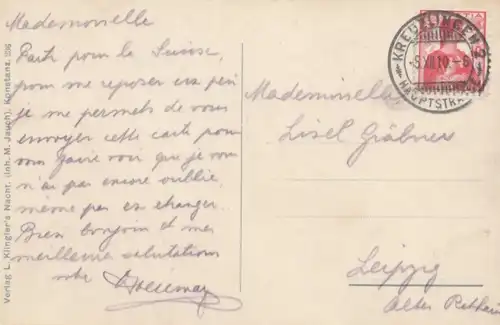 Mademoiselle
Parti pour la Suisse,
pour me reposer un peu
je me permets de vous
envoyer cette carte pour
vous faire voir que je vous
n'ai pas encore oublié,
même pas en changer.
Bien bonjour et mes
meilleures salutations
votre
Mademoiselle
Lisel Gräbner
Leipzig
Altes Rathaus
KREUZLINGEN
HAUPTSTRA
XII 10
Verlag L. Klingler's Nachf. (Inh. M. Jauch), Konstanz.